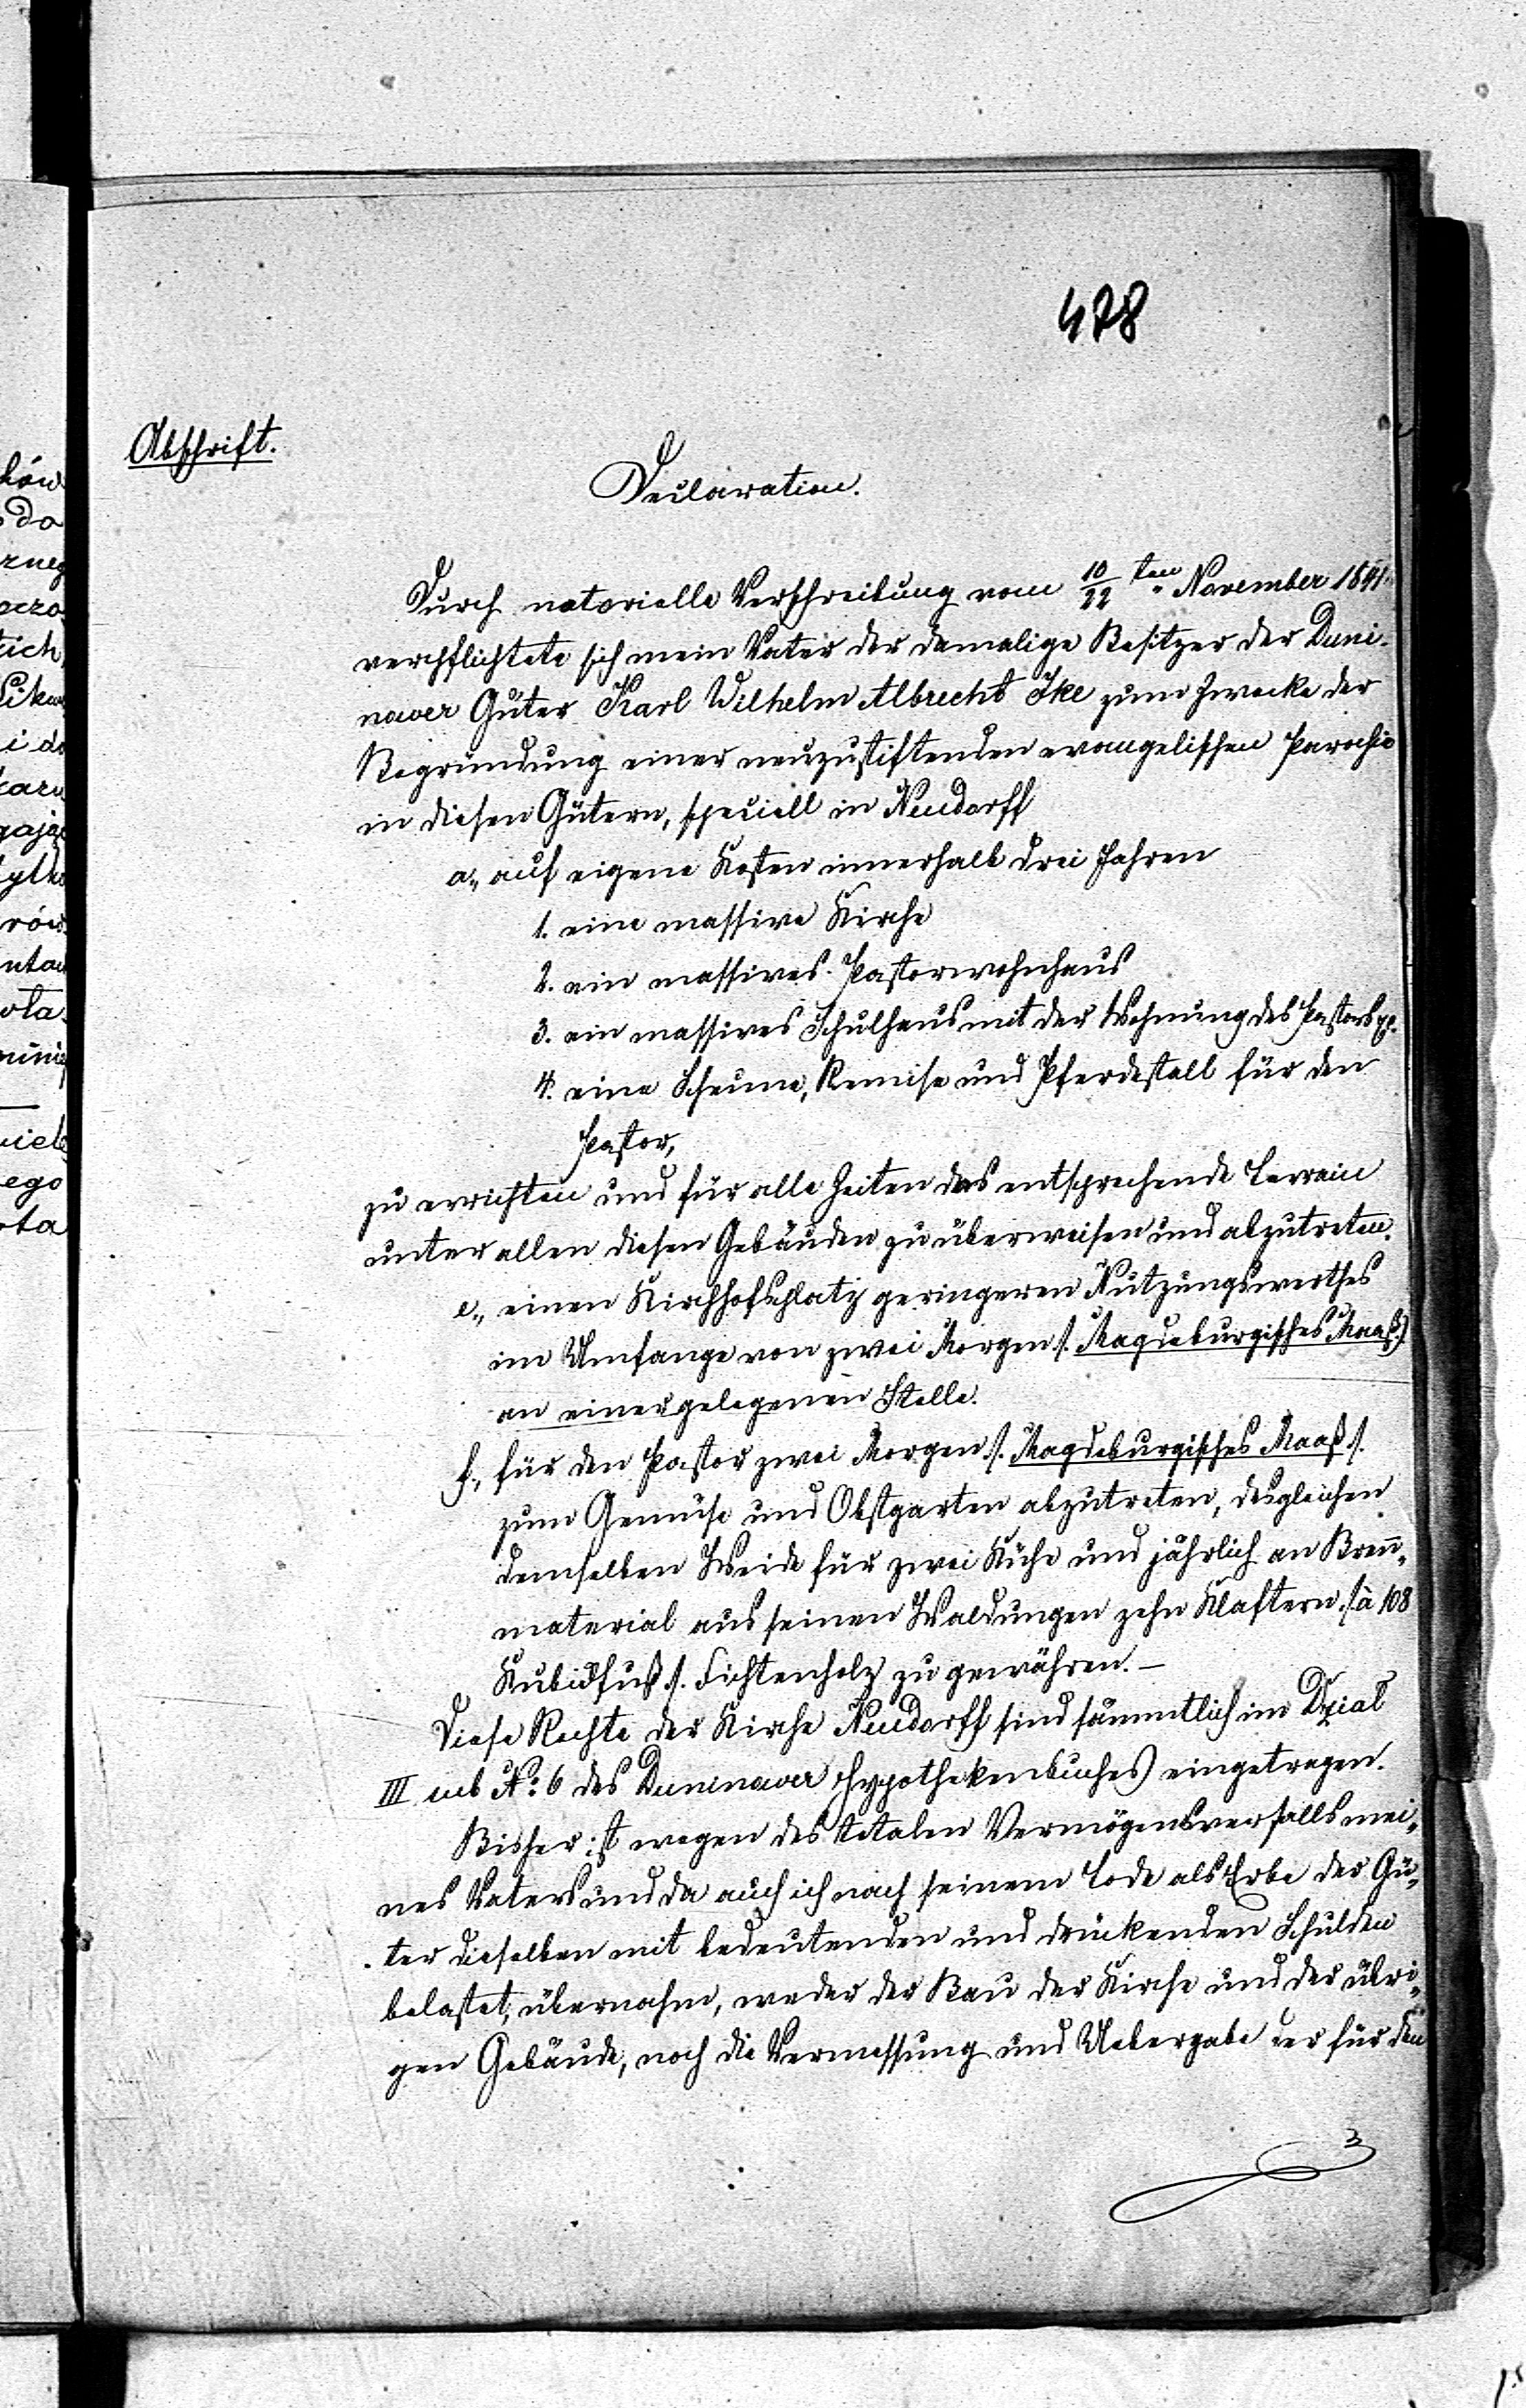 478
Abschrift.
Declaration.
Durch notarielle Verschreibung vom 10/22 ten November 1841
verpflichtete sich mein Vater der damalige Besitzer der Duni-
nower Güter Karl Wilhelm Albrecht Ike zum Zwecke der
Begründung einer neuzustiftenden evangelischen Parochie
in diesen Gütern, speciell in Neudorff
a., auf eigene Kosten innerhalb drei Jahren
1. eine massive Kirche
2. ein massives Pastorwohnhaus
3. ein massives Schulhaus mit der Wohnung des Pastors
4. eine Scheune, Remise und Pferdestall für den
Pastor,
zu errichten und für alle Zeiten das entsprechende Terrain
unter allen diesen Gebäuden zu überweisen und abzutreten.
e., einen Kirchhofsplatz geringeren Nutzungswerthes
im Umfange von zwei Morgen /. Magdeburgisches Maaß /
an einer gelegenen Stelle.
f., für den Pastor zwei Morgen /. Magdeburgisches Maaß /.
zum Gemüse und Obstgarten abzutreten, desgleichen
demselben Weide für zwei Kühe und jährlich an Breñ-
material aus seinen Waldungen zehn Klaftern /à 108
Kubicfuß /. Fichtenholz zu gewähren. —
Diese Rechte der Kirche Neudorff sind sämmtlich im Dzial
III sub No: 6 des Duninower Hypothekenbuches eingetragen.
Bisher ist wegen des totalen Vermögensverfalls mei-
nes Vaters und da auch ich nach seinem Tode als Erbe der Gü-
ter dieselben mit bedeutenden und drückenden Schulden
belastet, übernahm, weder der Bau der Kirche und der übri-
gen Gebäude, noch die Vermessung und Uebergabe der für den